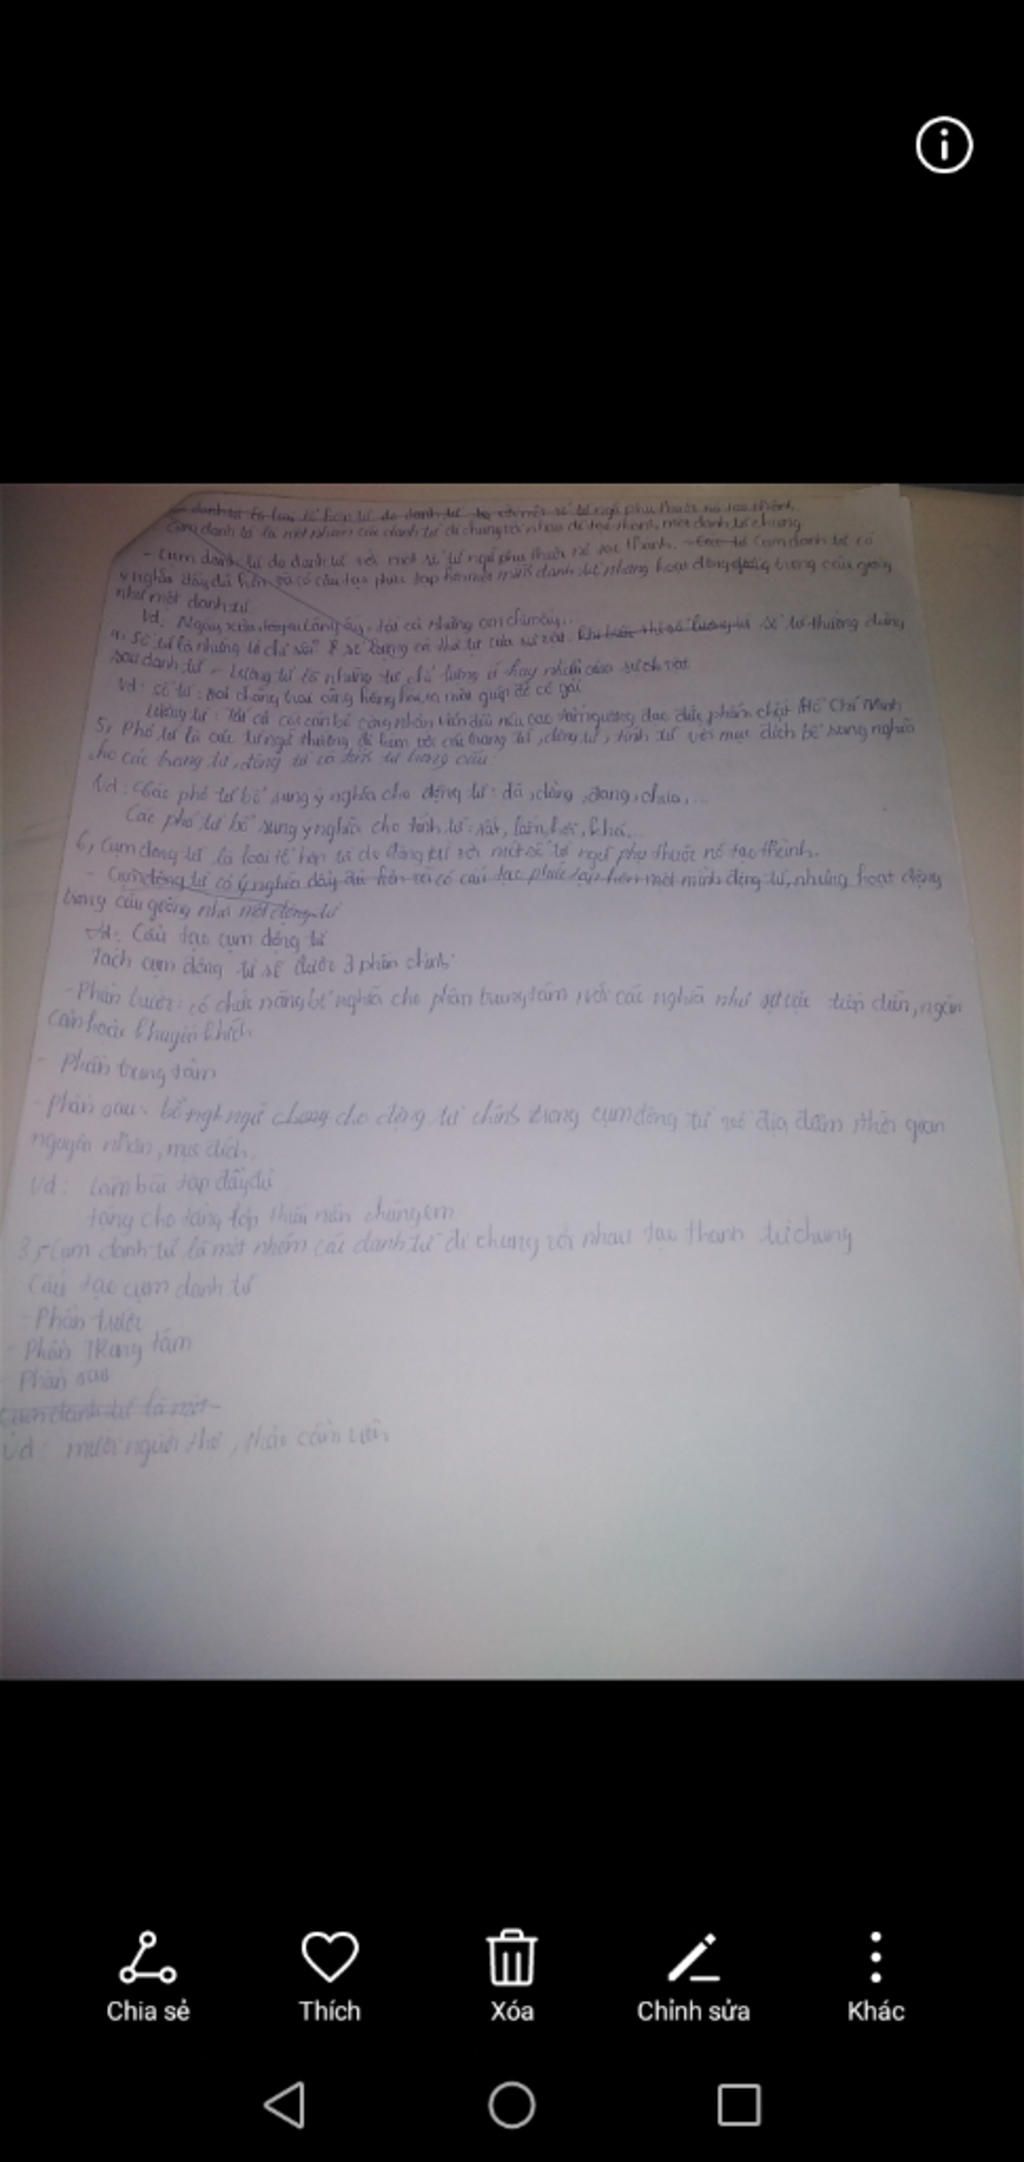 danh từ là loại tổ hợp từ do danh từ với một số từ ngữ phụ thuộc nó tạo thành.
Cụm danh từ là một nhóm các danh từ đi chung với nhau để tạo thành một danh từ chung
- Cụm danh từ do danh từ với một số từ ngữ phụ thuộc nó tạo thành. Cụm danh từ có
ý nghĩa đầy đủ hơn và có cấu tạo phức tạp hơn một mình danh từ nhưng hoạt động trong câu giống
như một danh từ
Vd: Ngày xưa, tất cả những em
4, Số từ là những từ chỉ số lượng và thứ tự của sự vật. số từ thường đứng
sau danh từ - Lượng từ là những từ chỉ lượng ít hay nhiều của sự vật
Vd: số từ: Hai chàng trai cùng giúp đỡ cô gái
Lượng từ: Tất cả các cán bộ công nhân viên đều nêu cao tấm gương đạo đức phẩm chất Hồ Chí Minh
5, Phó từ là các từ ngữ thường đi kèm với các trạng từ, động từ, tính từ với mục đích bổ sung nghĩa
cho các trạng từ, động từ và tính từ trong câu
Vd: Các phó từ bổ sung ý nghĩa cho động từ: đã, đang, chưa,...
Các phó từ bổ sung ý nghĩa cho tính từ: rất, lắm, hơi, khá...
6, Cụm động từ là loại tổ hợp từ do động từ với một số từ ngữ phụ thuộc nó tạo thành.
- Cụm động từ có ý nghĩa đầy đủ hơn và có cấu tạo phức tạp hơn một mình động từ, nhưng hoạt động
trong câu giống như một động từ
Cấu tạo cụm động từ
Tách cụm động từ sẽ được 3 phần chính
- Phần trước: có chức năng bổ nghĩa cho phần trung tâm với các nghĩa như sự việc tiếp diễn, ngăn
cản hoặc khuyến khích
- Phần trung tâm
- Phần sau: bổ ngữ cho động từ chính trong cụm động từ về địa điểm, thời gian
nguyên nhân, mục đích.
Vd: làm bài tập đầy đủ
tặng cho tầng lớp thiếu chúng em
3, Cụm danh từ là một nhóm các danh từ đi chung với nhau tạo thành từ chung
Cấu tạo cụm danh từ
- Phần trước
- Phần Trung tâm
- Phần sau
Cụm danh từ là một
Vd: mười người thợ, thảo cầm viên
Chia sẻ
Thích
Xóa
Chỉnh sửa
Khác